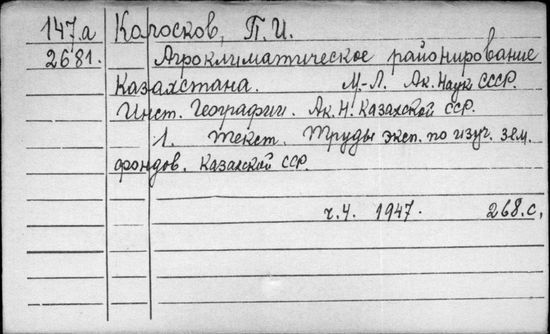 147а Каросков, П.И.
2681. Агроклиматическое районирование
Казахстана. М-Л. Ак. Наук СССР.
Инст. Географии. Ак. Н. Казахской ССР.
1. Текст. Труды эксп. по изуч. зем.
фондов. Казахской ССР.
ч.4. 1947. 268.с.